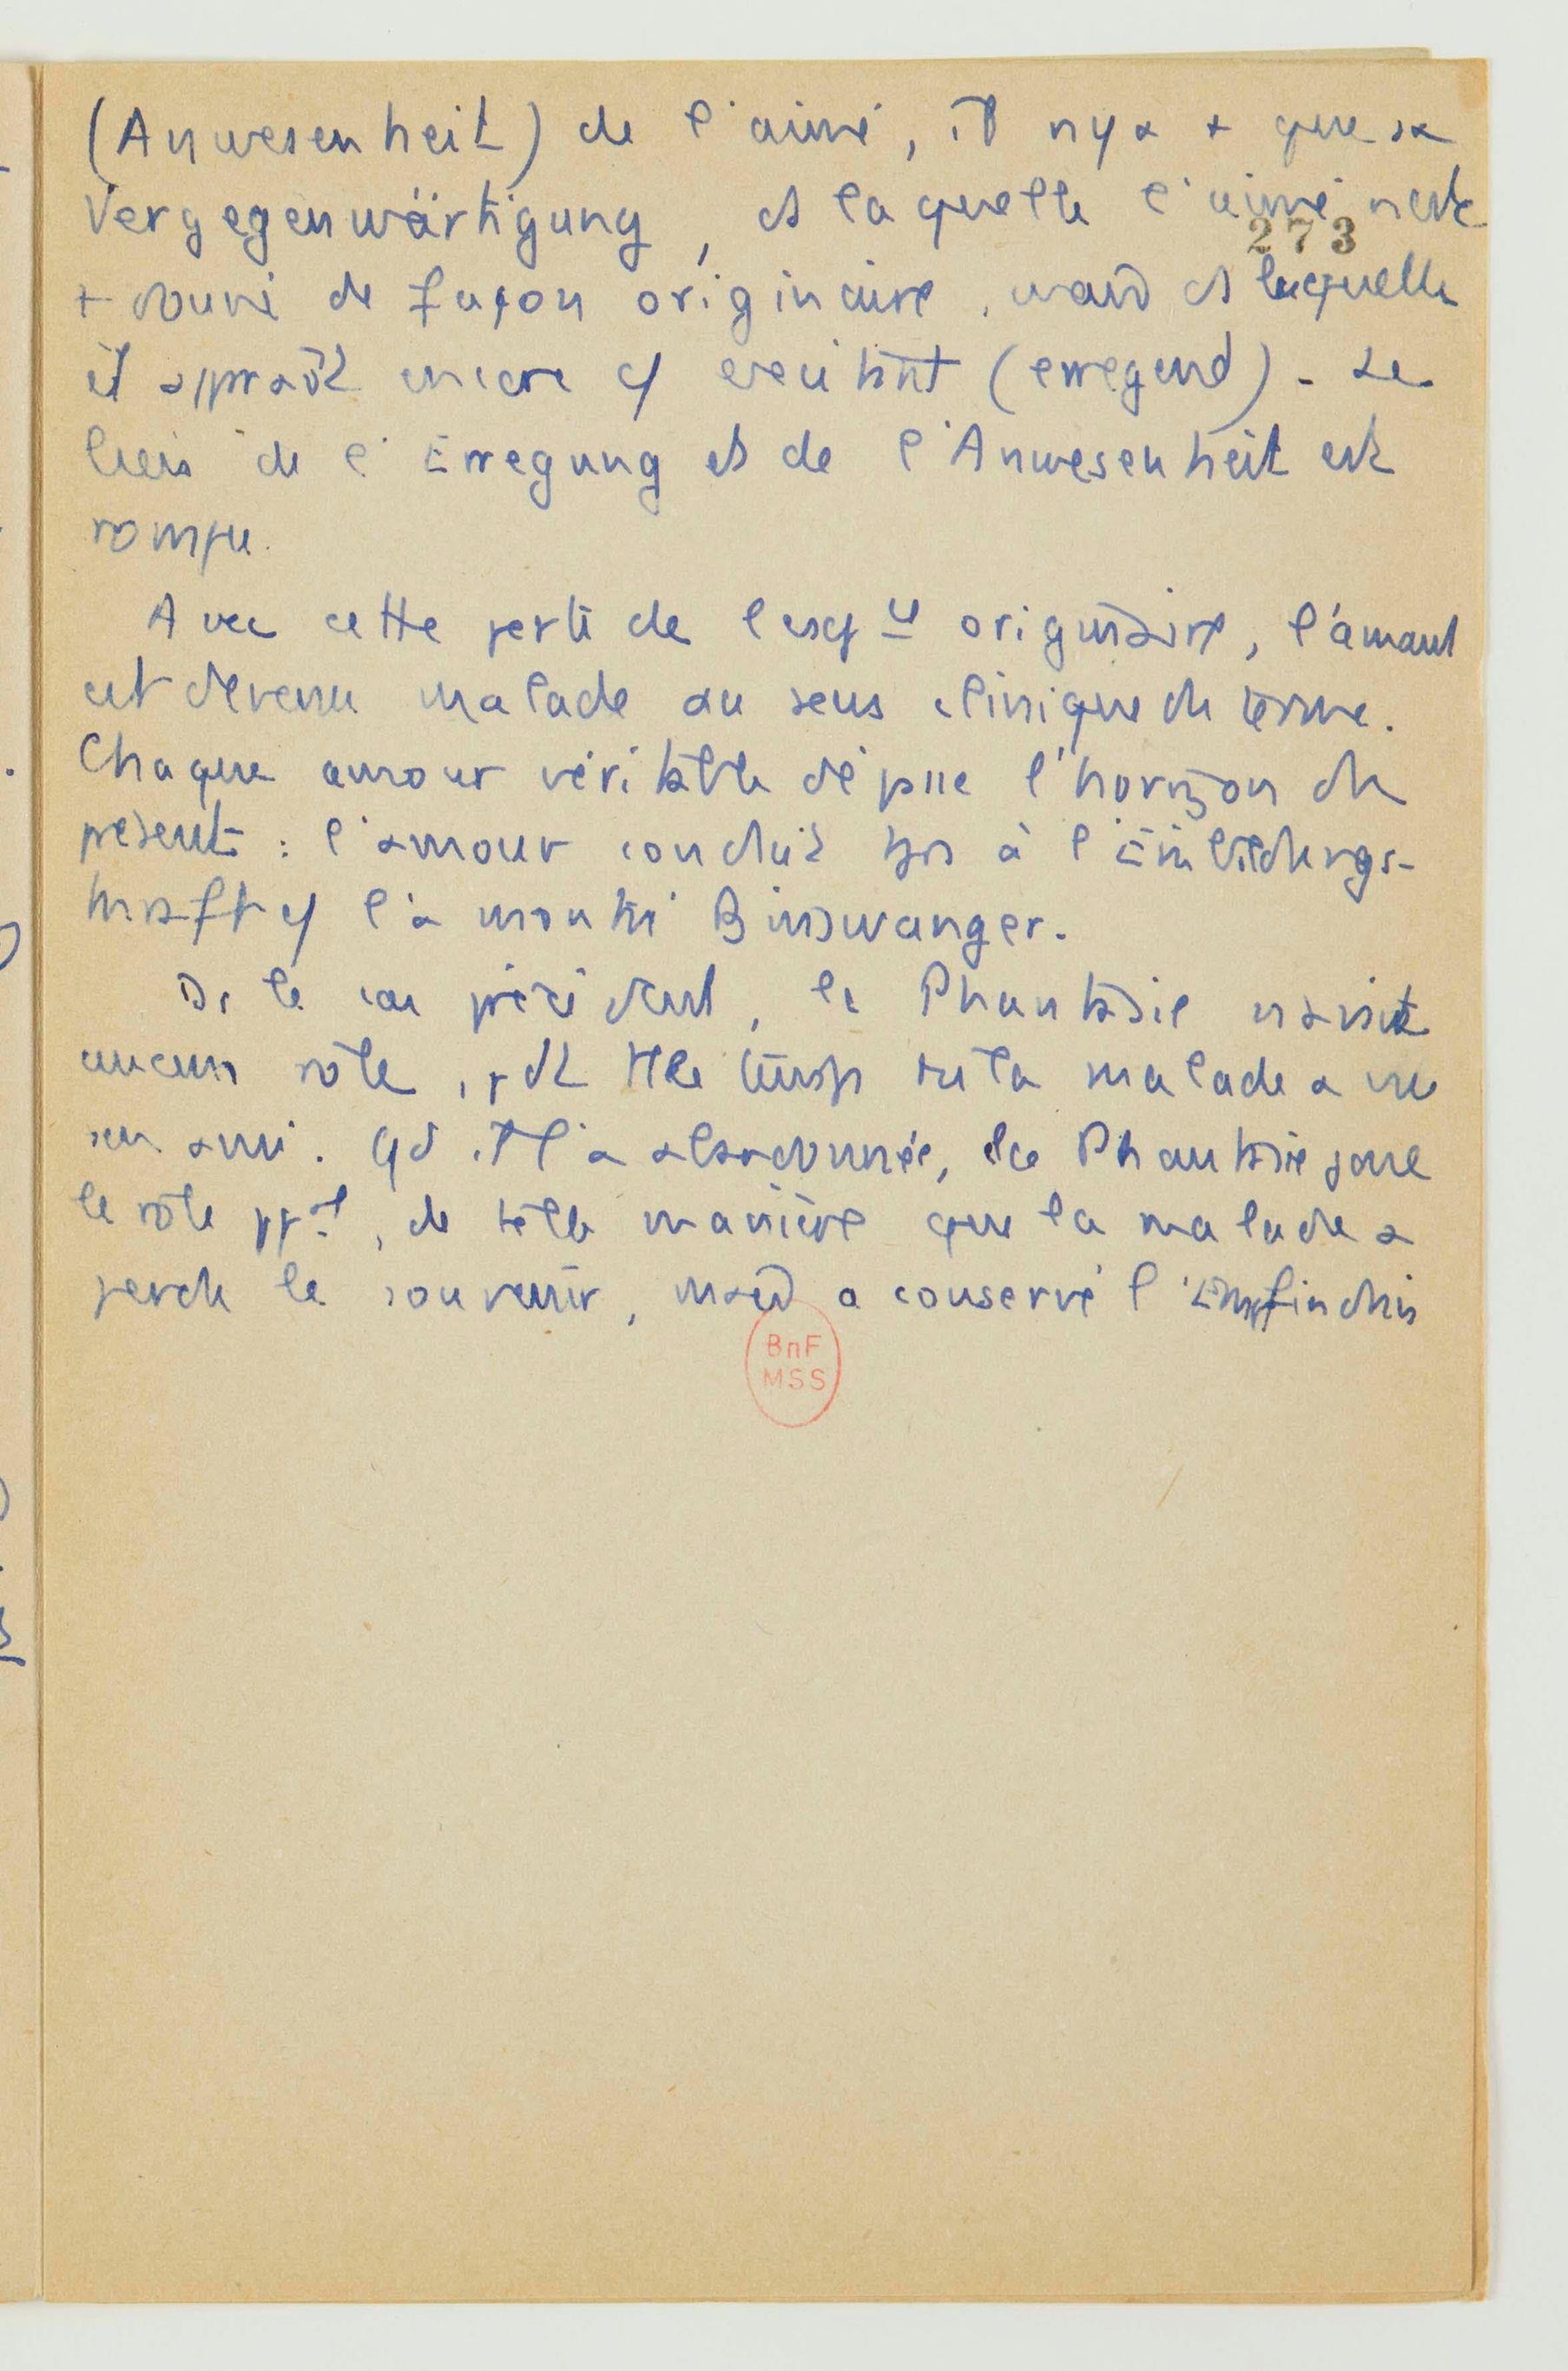 (Anwesenheit) de l'aimé, il n'y a + que sa
Vergegenwärtigung, ds laquelle l'aimé n'est
273
+ donné de façon originaire, mais ds laquelle
il apparaît encore c/ excitant (erregend). Le
lien de l'Erregung et de l'Anwesenheit est
rompu.
Avec cette perte de originaire, l'amant
est devenu malade au sens clinique du terme.
Chaque amour véritable dépasse l'horizon du
présent : l'amour conduit tjrs à l'Einbildungs-
kraft c/ l'a montré Binswanger.
Ds le cas précédent, la Phantasie n'avait
aucun rôle, pdt le temps où la malade a vu
son ami. Qd il l'a abandonnée, la Phantasie joue
le rôle ppal, de telle manière que la malade a
perdu le souvenir, mais a conservé l'Empfinden
BnF
MSS